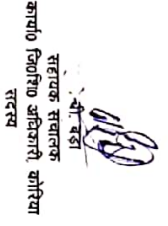 पी. बड़ा
सहायक संचालक
कार्या० जि०शि० अधिकारी, कोरिया
सदस्य